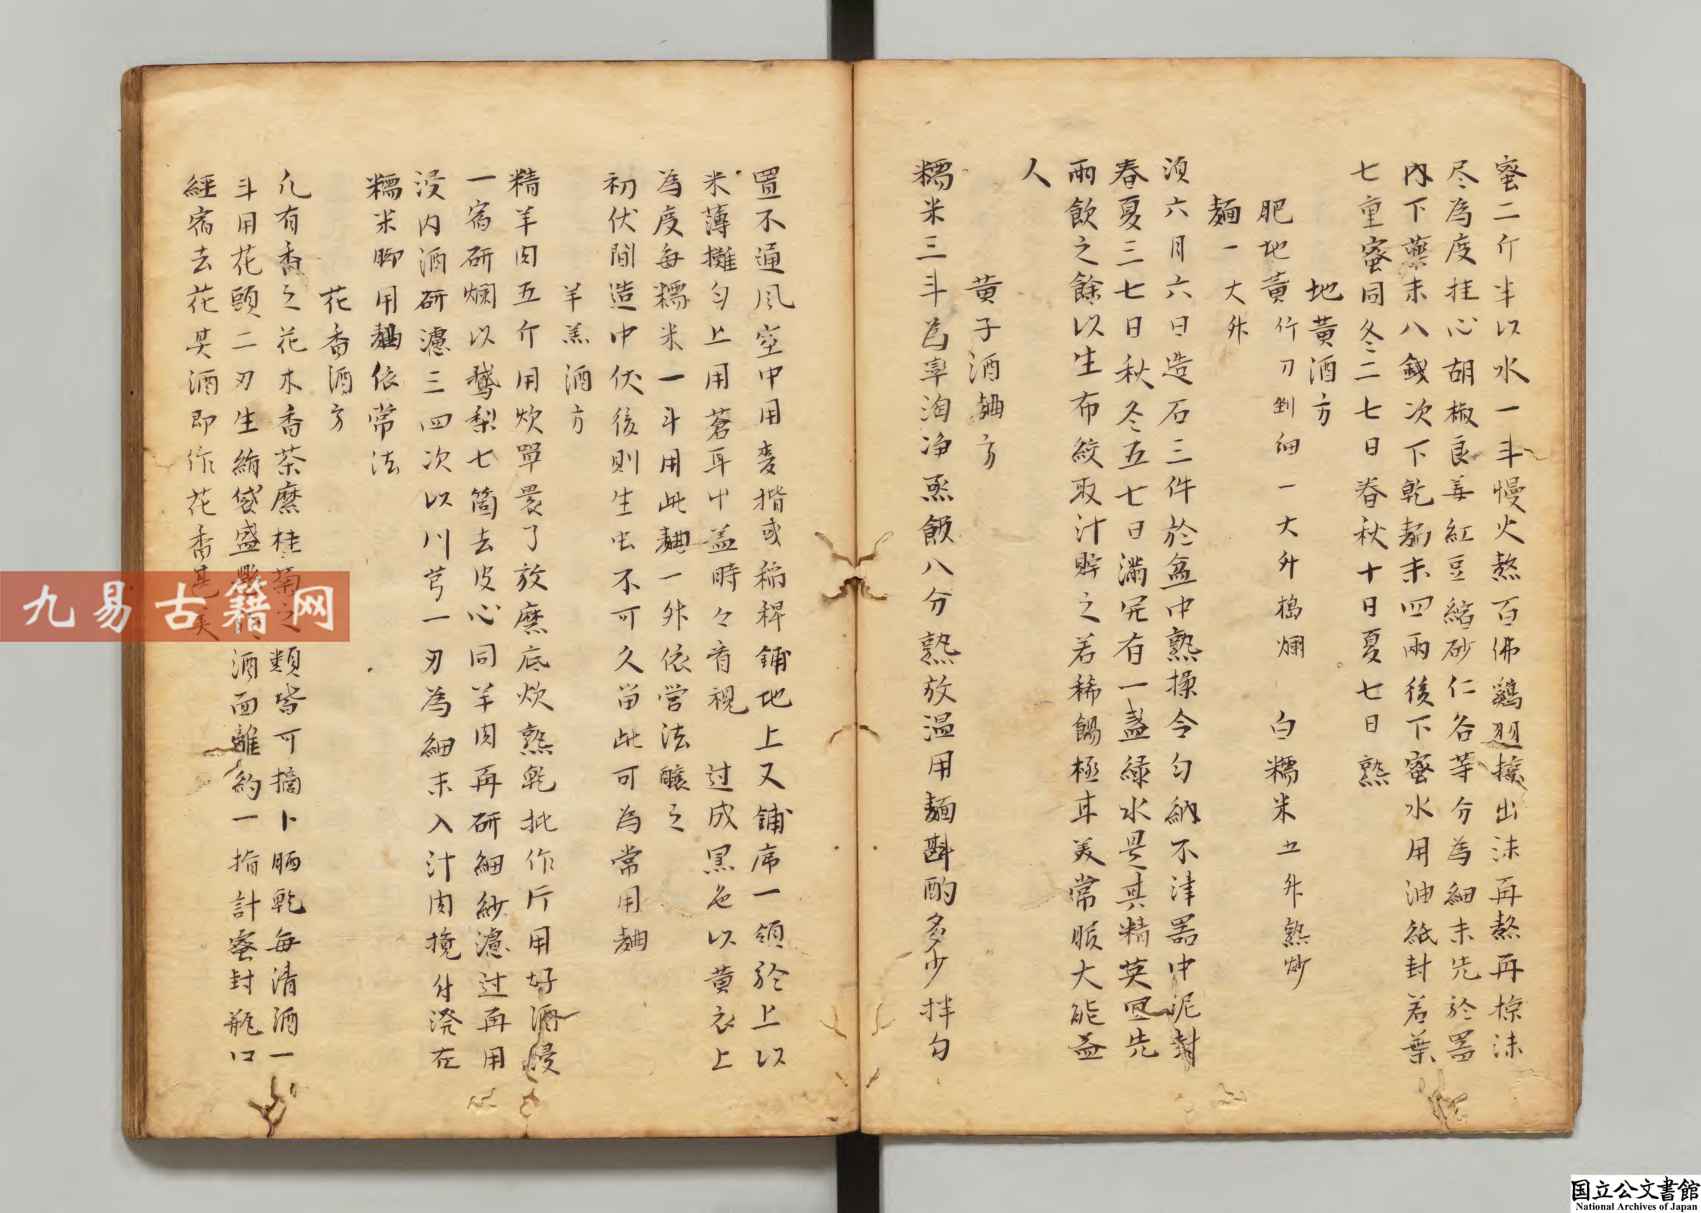 蜜二斤半以水一斗慢火熬百沸鷄翎掠出沫再熬再掠沫
尽為度桂心胡椒良姜紅豆縮砂仁各等分為細末先於器
内下藥末八錢次下乾麹末四兩後下蜜水用油紙封若葉
七重蜜同冬二七日春秋十日夏七日熟
地黄酒方
肥地黄 斤刀剉細一大升搗爛 白糯米五升熟炒
麵一大升
須六月六日造右三件於盆中熟揉令匀納不津器中泥封
春夏三七日秋冬五七日滿完有一盞綠水是其精英冝先
而飲之餘以生布絞取汁貯之若稀餳極甘美常服大能益
人
黄子酒麯方
糯米三斗為率淘净蒸飯八分熟放温用麺斟酌多少拌匀
置不通風室中用麥楷或稲稈鋪地上又鋪席一領於上以
米薄攤匀上用蒼耳中盖時々看視 过成黒色以黄衣上
為度每糯米一斗用此麯一升依常法醸之
初伏間造中伏後則生虫不可久留此可為常用麯
羊羔酒方
精羊肉五斤用炊單罨了放甑底炊熟乾批作斤用好酒浸
一宿研爛以鵞梨七箇去皮心同羊肉再研細紗濾过再用
浸内酒研濾三四次以川芎一刃為細末入汁肉攪付澄在
糯米脚用麯依常法
花香酒方
凡有香之花木香荼蘼桂菊之類皆可摘下晒乾每清酒一
斗用花頭二刃生絹袋盛懸 酒面離約一指計蜜封瓶口
經宿去花其酒即作花香甚美
九易古籍网
国立公文書館
National Archives of Japan